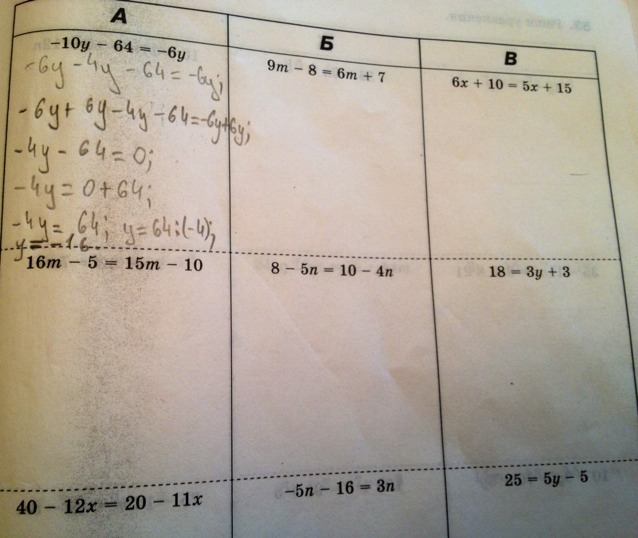 А
Б
В
-10y - 64 = -6y
-6y - 4y - 64 = -6y;
-6y + 6y - 4y - 64 = -6y + 6y;
-4y - 64 = 0;
-4y = 0 + 64;
-4y = 64; y = 64 : (-4);
y = -16
9m - 8 = 6m + 7
6x + 10 = 5x + 15
16m - 5 = 15m - 10
8 - 5n = 10 - 4n
18 = 3y + 3
40 - 12x = 20 - 11x
-5n - 16 = 3n
25 = 5y - 5